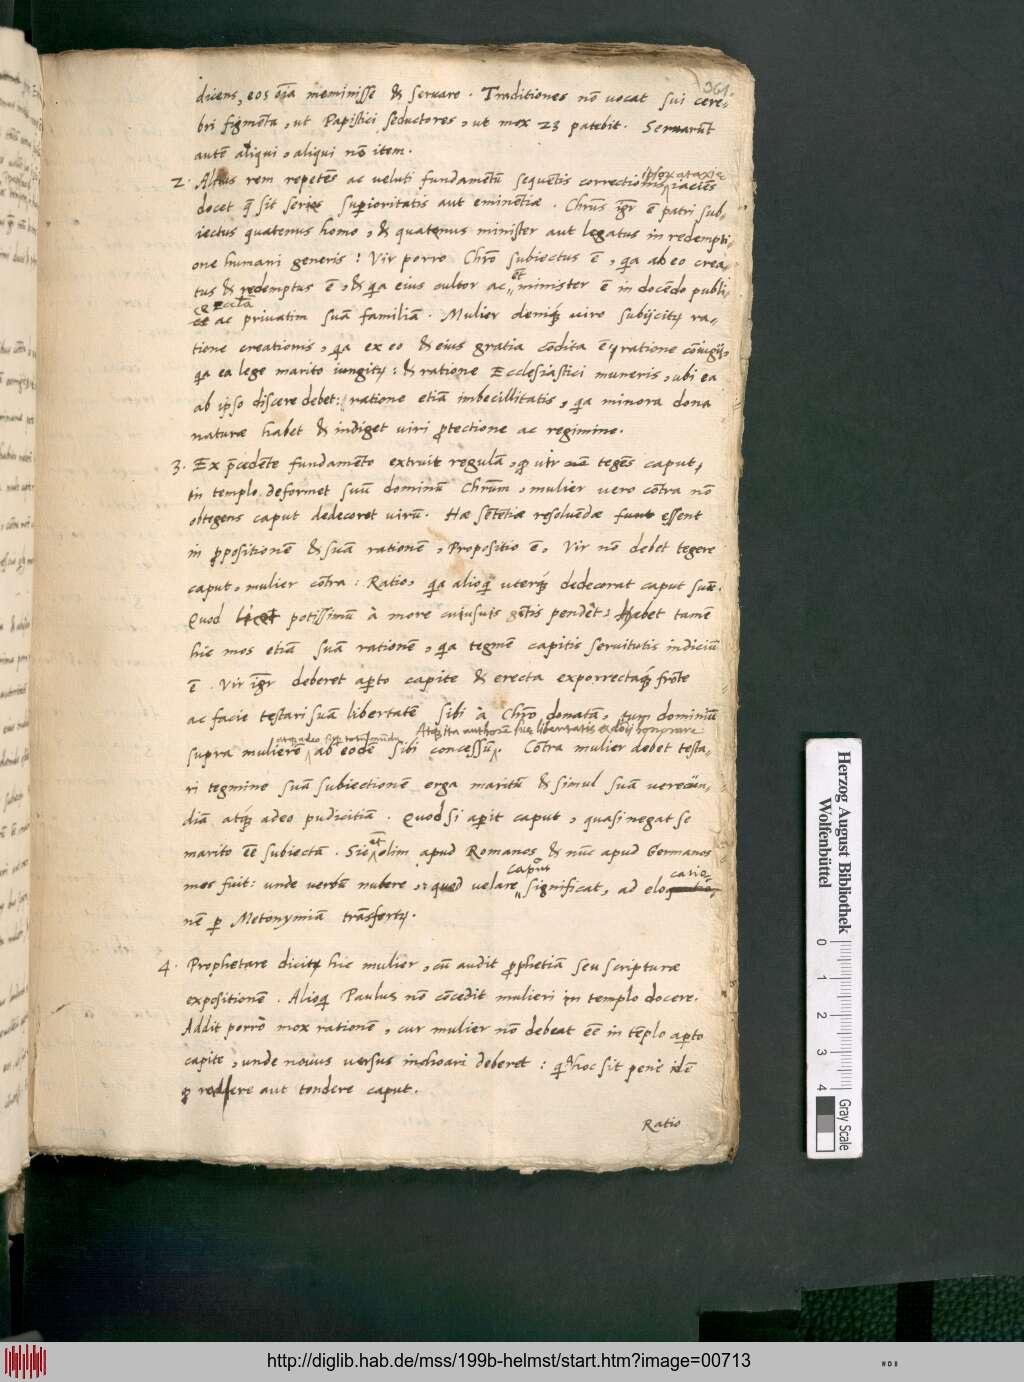 361.
dicens, eos oīa meminisse & seruare. Traditiones nō uocat sui cere-
bri figmēta, ut Papistici seductores, ut mox 23 patebit. Seruarūt
autē aliqui, aliqui nō item.
2. Altius rem repetēs ac ueluti fundamētū sequētis correctionis iaciēs
docet q̄ sit series superioritatis aut eminētiæ. Chrūs igr̄ ē patri sub-
iectus quatenus homo, & quatenus minister aut legatus in redempti-
one humani generis: Vir porro Chrō subiectus ē, qa ab eo crea-
tus & redemptus ē, & qa eius cultor ac et minister ē in docēdo publi-
ce Ecclīa
et ac priuatim suā familiā. Mulier deniq; uiro subijcit ra-
tione creationis, qa ex eo & eius gratia cōdita ē, ratione cōiugij,
qa ea lege marito iungit: & ratione Ecclesiastici muneris, ubi ea
ab ipso discere debet: ratione etiā imbecillitatis, qa minora dona
naturæ habet & indiget uiri protectione ac regimine.
3. Ex præcedēte fundamēto extruit regulā, q uir tegēs caput,
in templo deformet suū dominū Chrūm, mulier uero cōtra nō
obtegens caput dedecoret uirū. Hæ sētētiæ resoluēdæ essent
in propositionē & suā rationē, Propositio ē, Vir nō debet tegere
caput, mulier cōtra: Ratio, qa alioq uterq; dedecorat caput suū.
Quod licet potissimū à more cuiusuis gētis pendēt, habet tamē
hic mos etiā suā rationē, qa tegmē capitis seruitutis indiciū
ē. Vir igr̄ deberet aperto capite & erecta exporrectaq; frōte
ac facie testari suā libertatē sibi à Chrō donatā, tum dominiū
supra mulierē ab eodē sibi concessū. Cōtra mulier debet testa-
ri tegmine suā subiectionē erga maritū & simul suā uerecūn-
diā atq; adeo pudicitiā. Quod si aperit caput, quasi negat se
marito ēē subiectā. Sic et olim apud Romanos & nūc apud Germanos
mos fuit: unde uerbū nubere, quod uelare caput significat, ad eloca-
tio-
nē per Metonymiā trāsfert.
4. Prophetare dicit hic mulier, cū audit prophetiā seu scripturæ
expositionē. Alioq Paulus nō cōcedit mulieri in templo docere.
Addit porrò mox rationē, cur mulier nō debeat ēē in tēplo aperto
capite, unde nouus uersus inchoari deberet: q hoc sit penè idē
q radere aut tondere caput.
Ratio
Herzog August Bibliothek
Wolfenbüttel
0 1 2 3 4
Gray Scale
http://diglib.hab.de/mss/199b-helmst/start.htm?image=00713
WDB